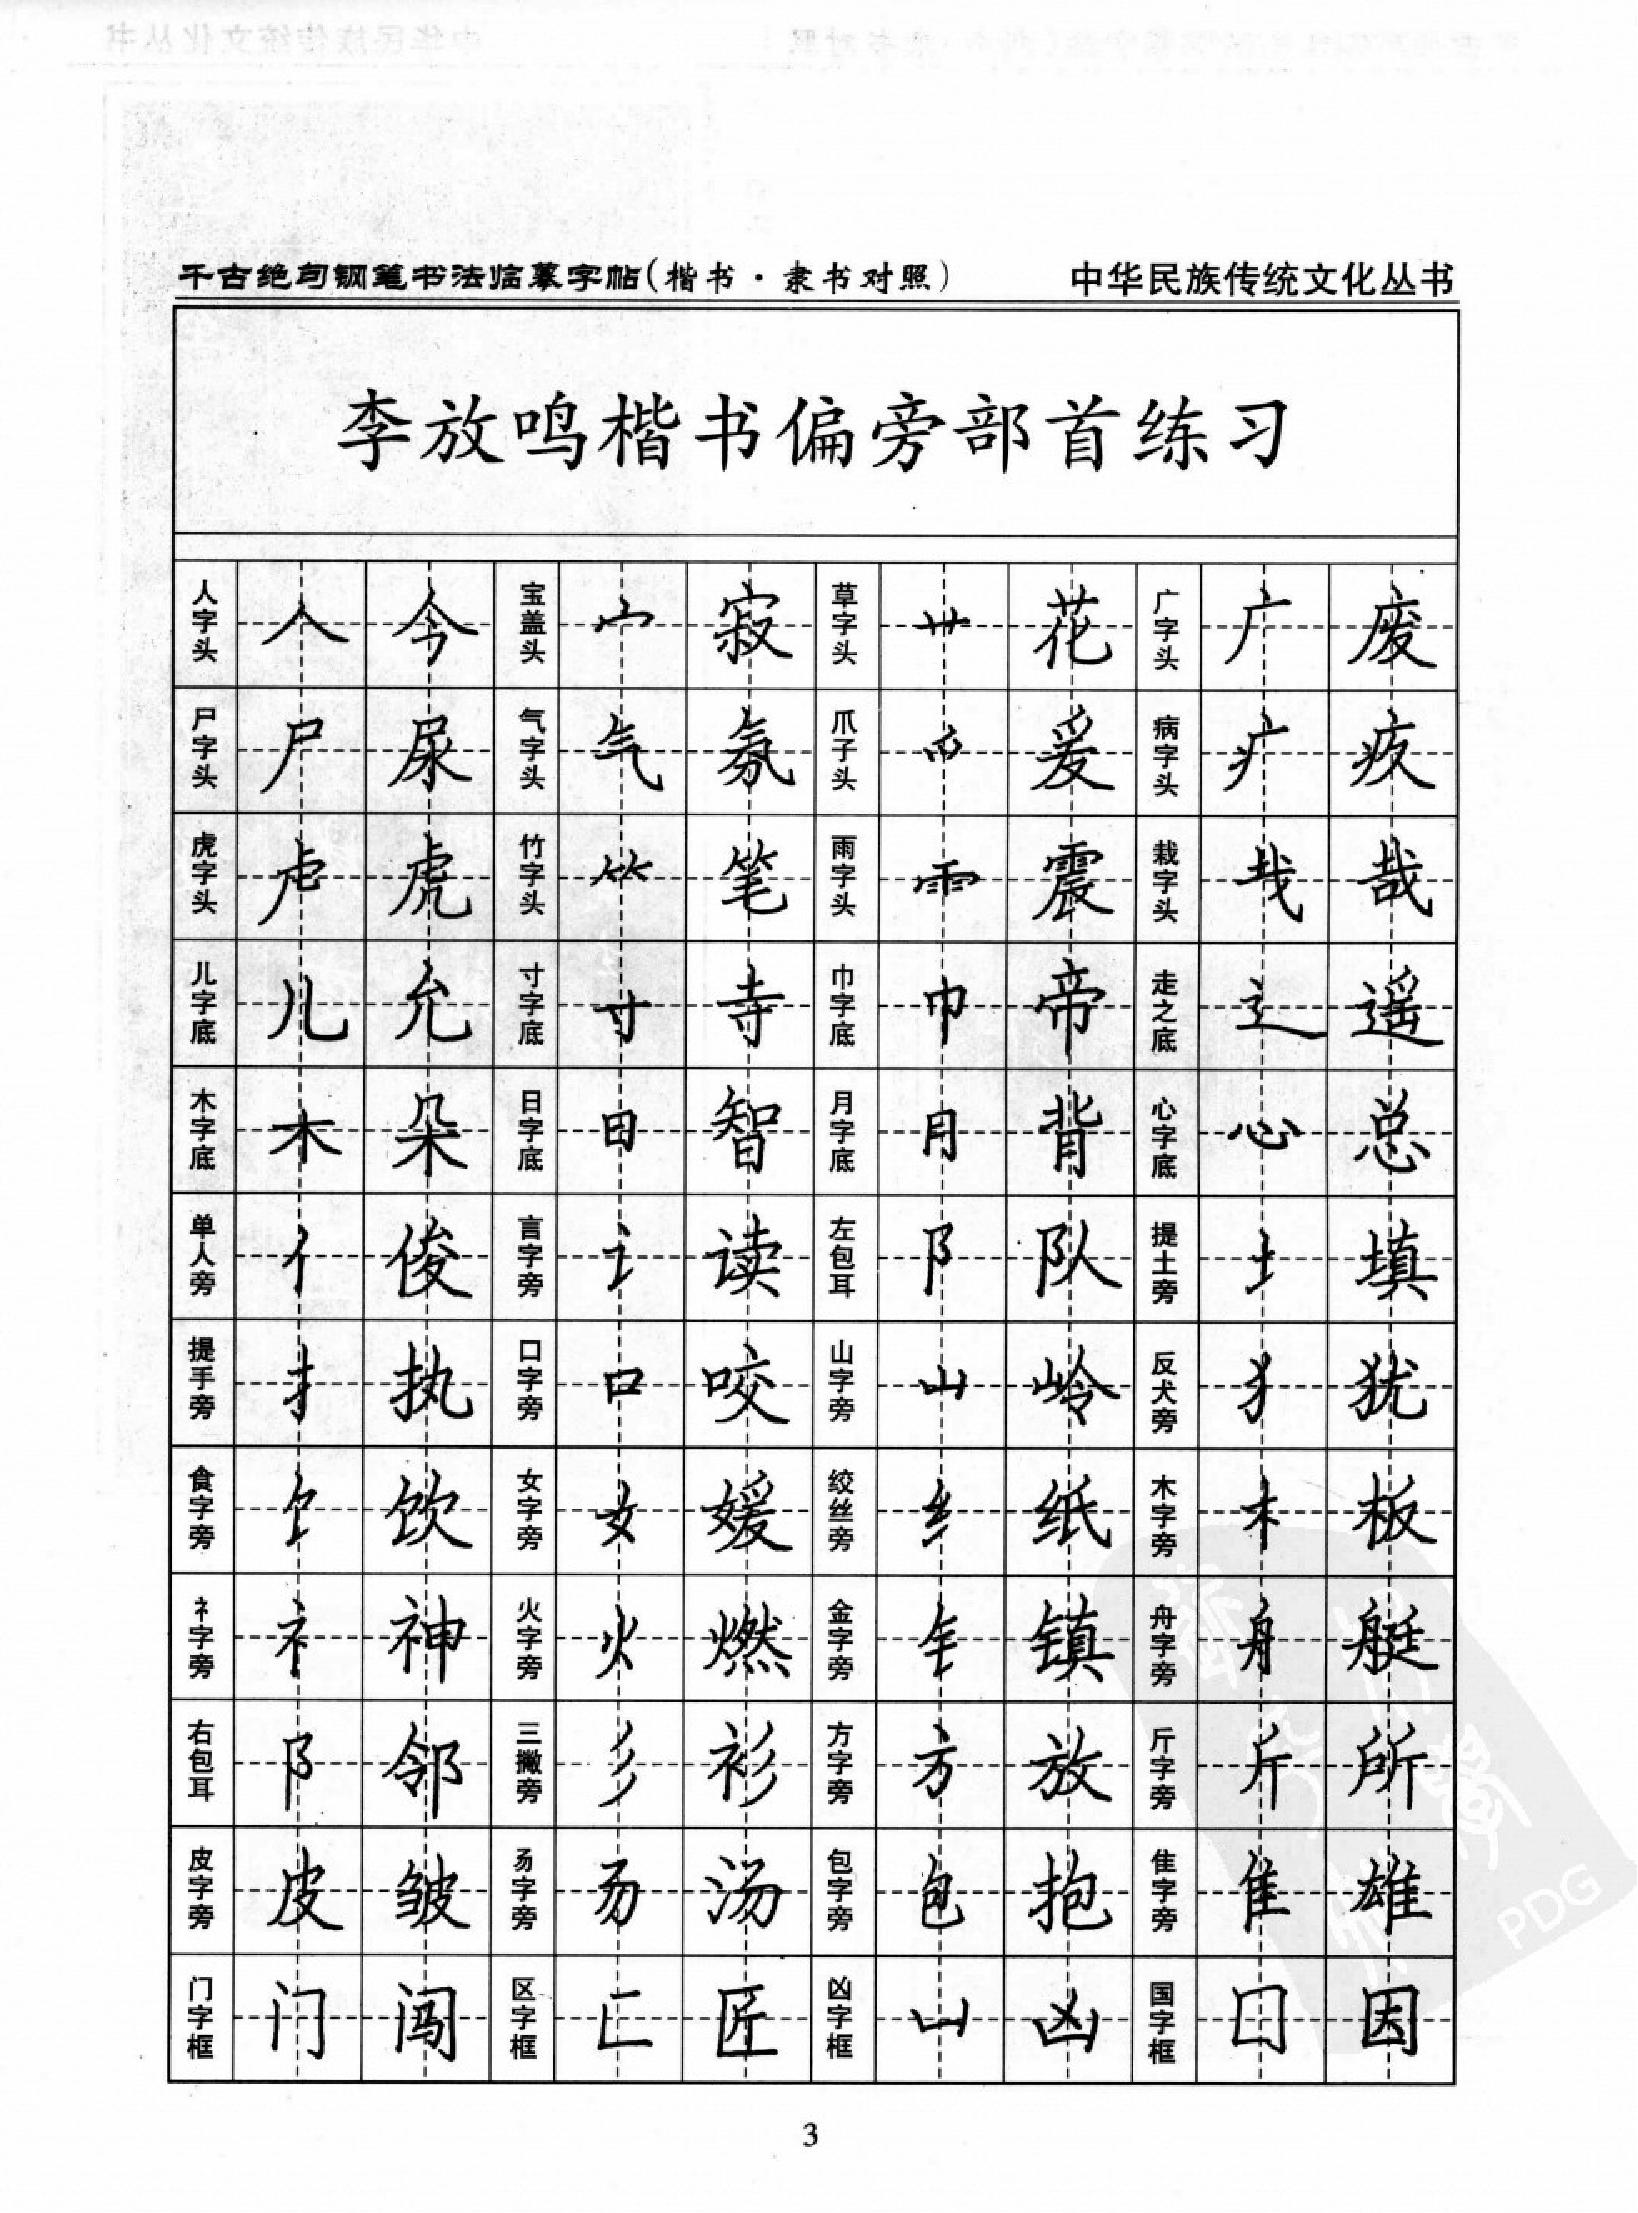 千古绝句钢笔书法临摹字帖(楷书·隶书对照) 中华民族传统文化丛书
李放鸣楷书偏旁部首练习
人字头 人 今 宝盖头 宀 寂 草字头 艹 花 广字头 广 废
尸字头 尸 尿 气字头 气 氛 爪子头 爫 爰 病字头 疒 疾
虎字头 虍 虎 竹字头 ⺮ 笔 雨字头 ⻗ 震 栽字头 𢦏 哉
儿字底 儿 允 寸字底 寸 寺 巾字底 巾 帝 走之底 辶 遥
木字底 木 朵 日字底 日 智 月字底 月 背 心字底 心 总
单人旁 亻 俊 言字旁 讠 读 左包耳 阝 队 提土旁 土 填
提手旁 扌 执 口字旁 口 咬 山字旁 山 岭 反犬旁 犭 犹
食字旁 饣 饮 女字旁 女 媛 绞丝旁 纟 纸 木字旁 木 板
礻字旁 礻 神 火字旁 火 燃 金字旁 钅 镇 舟字旁 舟 艇
右包耳 阝 邻 三撇旁 彡 衫 方字旁 方 放 斤字旁 斤 所
皮字旁 皮 皱 㐆字旁 汤 包字旁 包 抱 隹字旁 隹 雄
门字框 门 闯 区字框 匚 匠 凶字框 凵 凶 国字框 囗 因
PDG
3